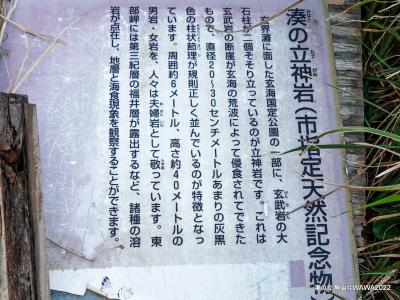 湊の立神岩（市指定天然記念物
みなと
たてがみ
玄界灘に面した玄海国定公園の一部に、玄武岩の大
石柱が二個そそり立っているのが立神岩です。これは
玄武岩の断崖が玄海の荒波によって侵食されてできた
もので、直径20～30センチメートルあまりの灰黒
色の柱状節理が規則正しく並んでいるのが特徴となっ
ています。周囲約6メートル、高さ約40メートルの
男岩・女岩を、人々は夫婦岩として敬っています。東
部岬には第三紀層の福井層が露出するなど、諸種の溶
岩が点在し、地層と海食現象を観察することができます。
湊の立神岩©WAWA2022